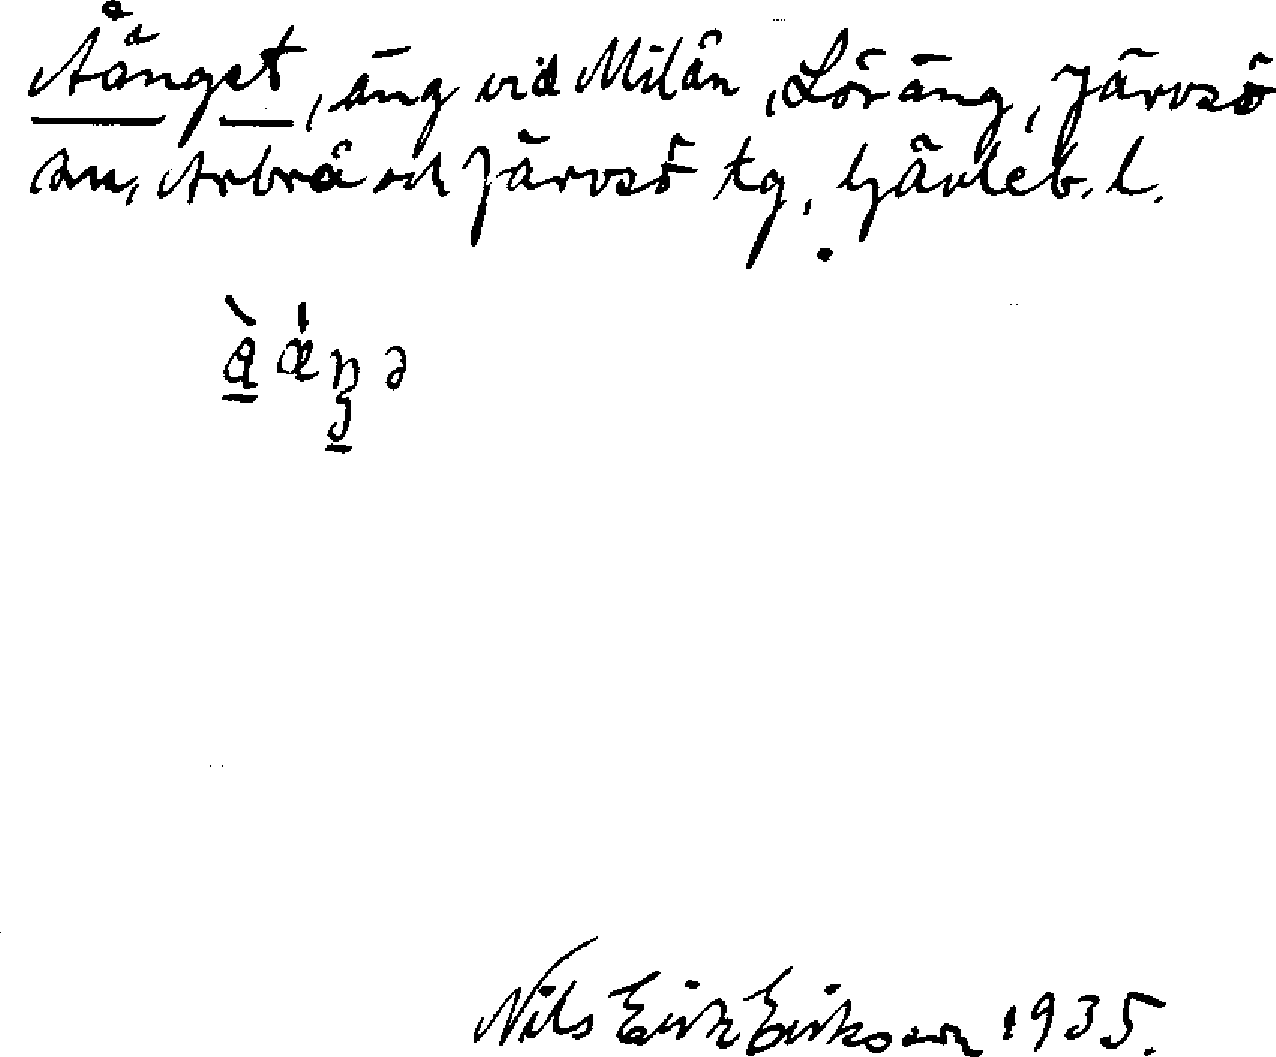 Åänget, äng vid Milån, Löräng, Järvsö
sn, Arbrå och Järvsö tg, Gävleb. l.
å æŋ ə
Nils Erik Eriksson 1935.